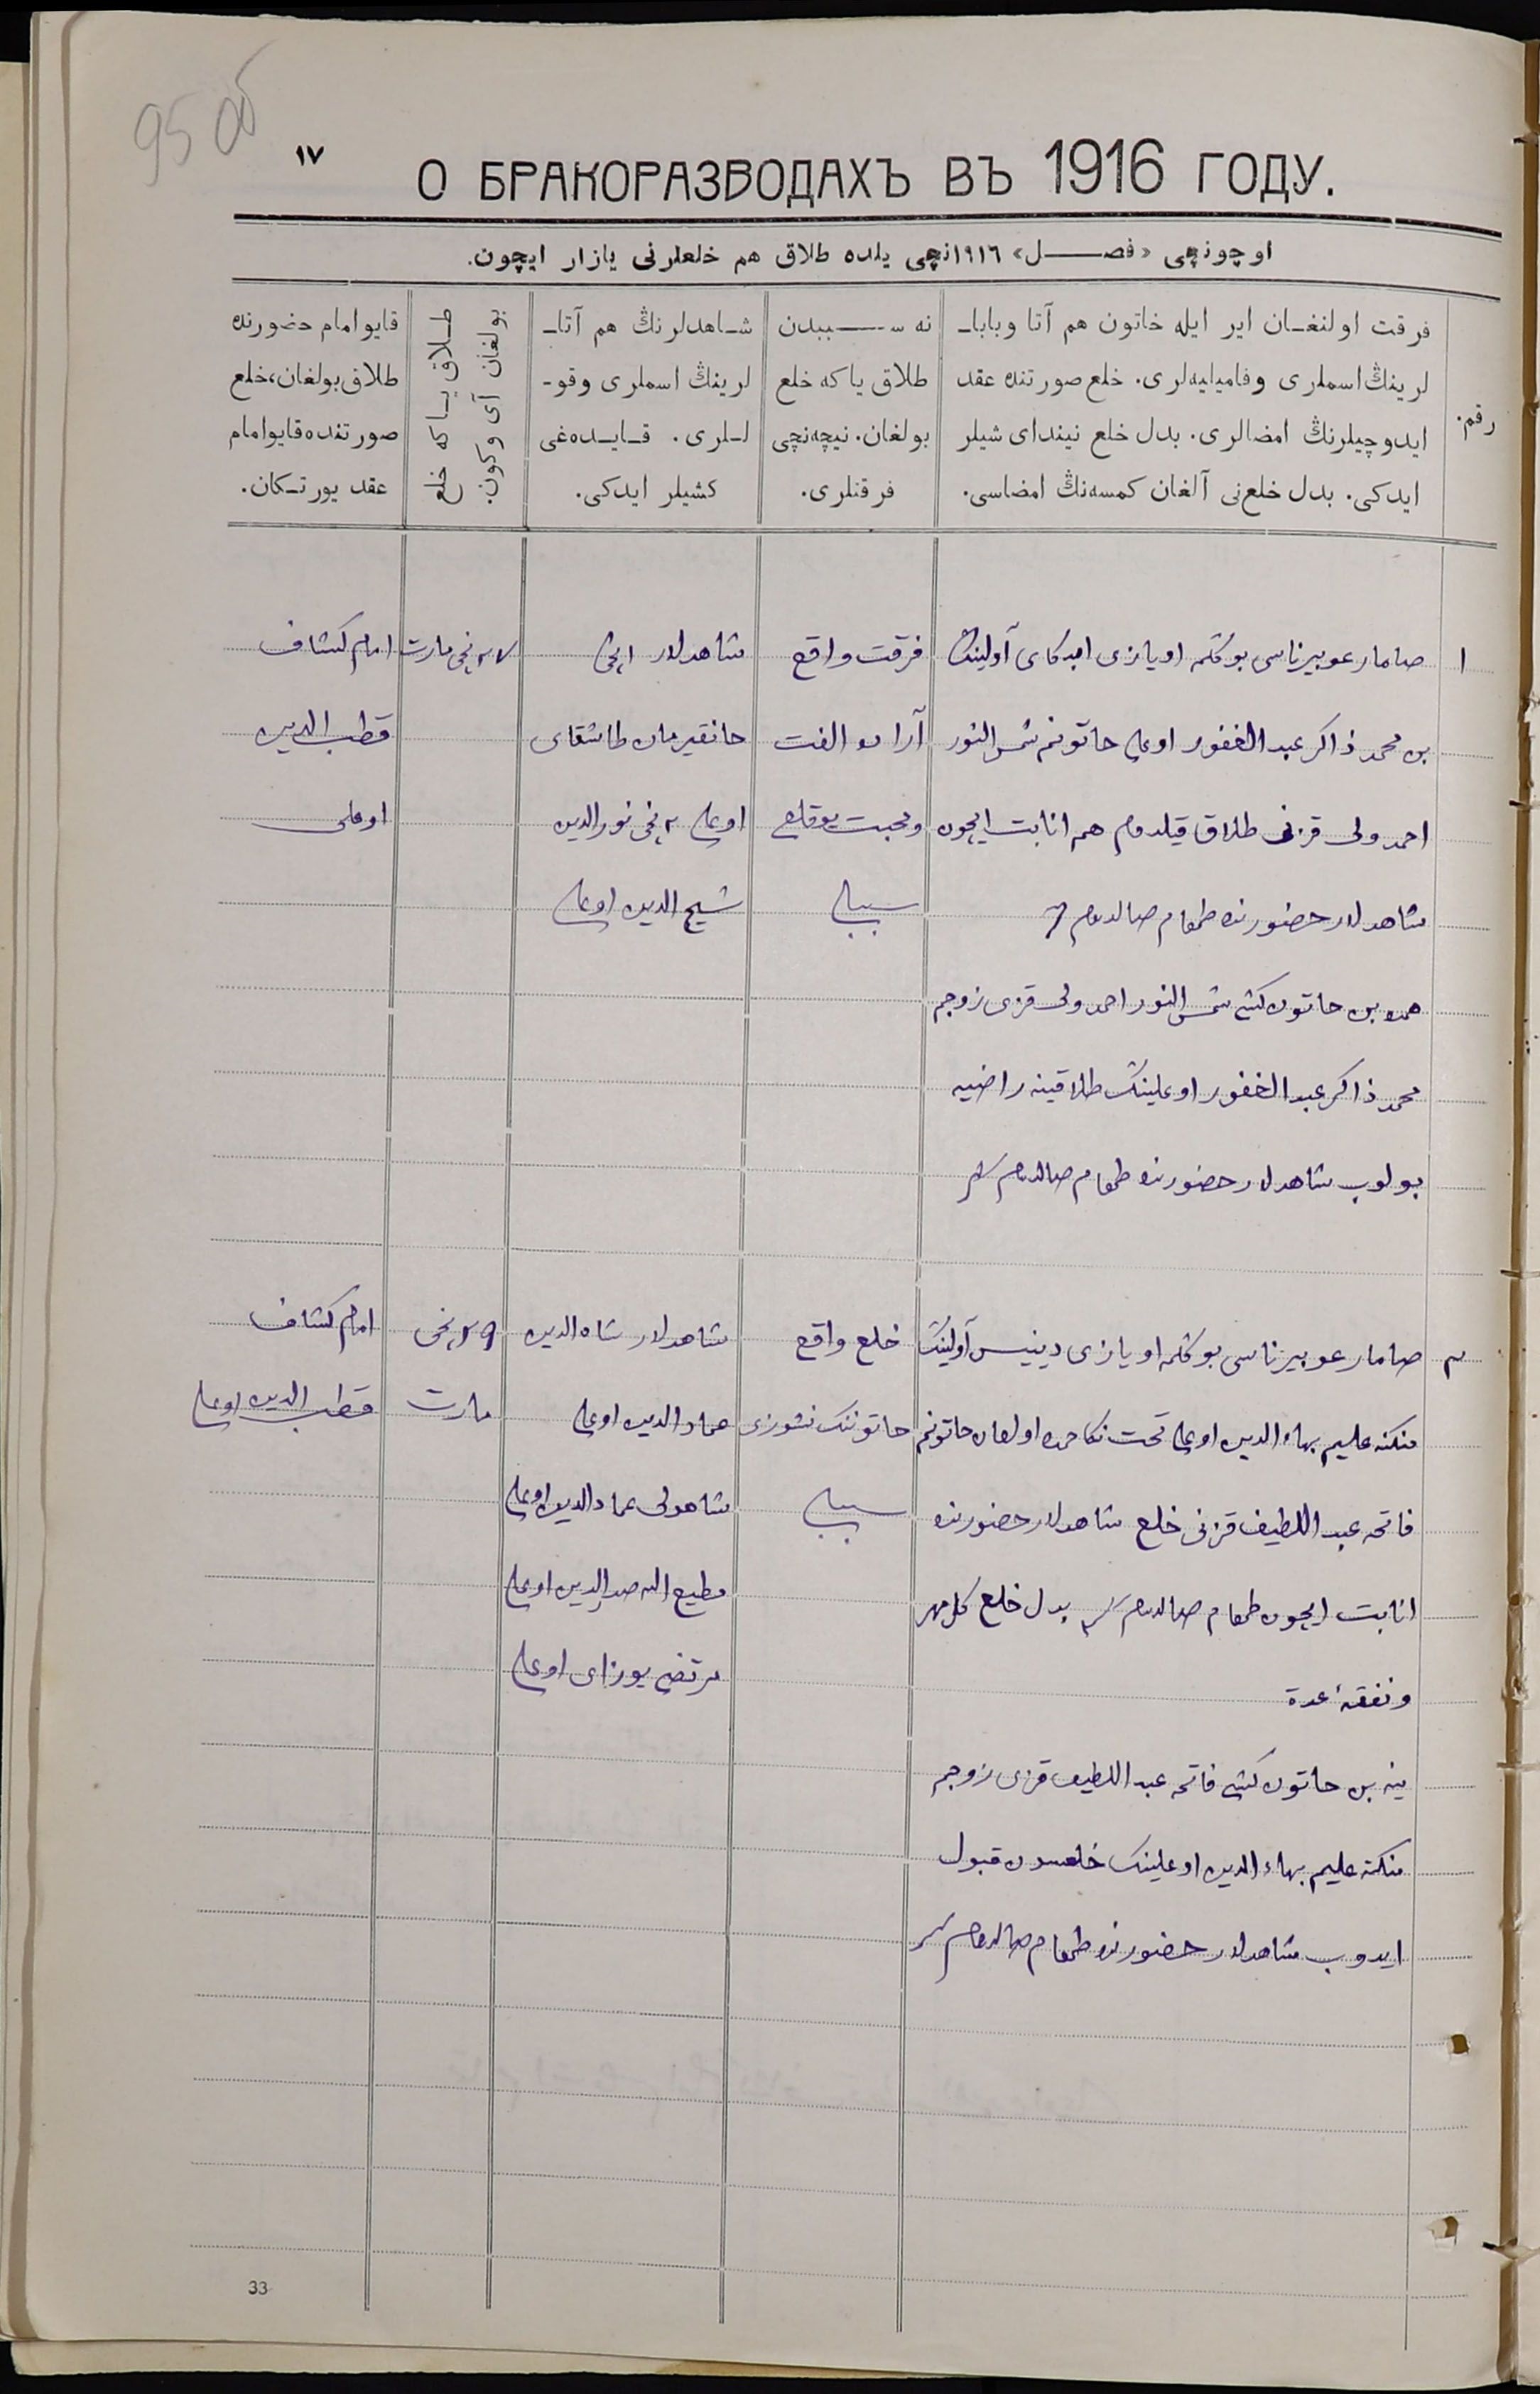 95 об
١٧
О БРАКОРАЗВОДАХЪ ВЪ 1916 ГОДУ.
اوچونچی «فصـــل» ١٩١٦نچی یلده طلاق هم خلعلرنی یازار ایچون.
رقم.
فرقت اولنغـان ایر ایله خاتون هم آتا وبابا‍ـ
لرینڭ اسملری وفامیلیه‌لری. خلع صورتنده عقد
ایدوچیلرنڭ امضالری. بدل خلع نیندای شیلر
ایدکی. بدل خلع‌نی آلغان کمسه‌نڭ امضاسی.
نه ســـببدن
طلاق یاکه خلع
بولغان. نیچه‌نچی
فرقتلری.
شـاهدلرنڭ هم آتا‍ـ
لرینڭ اسملری وقو‍ـ
لـلری. قـایـده‌غی
کشیلر ایدکی.
طـلاق یـاکه خلع
بولغان آی وکون.
قایو امام حضورنده
طلاق بولغان، خلع
صورتنده قایو امام
عقد یورتـکان.
١
صامار عوبیرناسی بوکلمه اویازی آولینڭ
بن محمد ذاکر عبد الغفور اوغلی خاتونم شمس النور
احمد ولی قزنی طلاق قیلدم هم انابت ایچون
شاهدلار حضورنده طمغام صالدم
همده بن خاتون کشی شمس النور احمد ولی قزی زوجم
محمد ذاکر عبد الغفور اوغلینڭ طلاقینه راضیه
بولوب شاهدلار حضورنده طمغام صالدم
فرقت واقع
آراده الفت
ومحبت یوقلغی
سببلی
شاهدلار
اوغلی ٢نچی نورالدین
شیخ الدین اوغلی
٢٧نچی مارت
امام کشاف
قطب الدین
اوغلی
٢
صامار عوبیرناسی بوکلمه اویازی دینیس آولینڭ
بهاء الدین اوغلی تحت نکاحمده اولغان خاتونم
فاتحه عبد اللطیف قزنی خلع شاهدلار حضورنده
انابت ایچون طمغام صالدم بدل خلع کل مهر
ونفقهٔ عدة
ینه بن خاتون کشی فاتحه عبد اللطیف قزی زوجم
بهاء الدین اوغلینڭ خلعسون قبول
ایدوب شاهدلار حضورنده طمغام صالدم
خلع واقع
خاتوننڭ نشوزی
سببلی
شاهدلار شاه الدین
عماد الدین اوغلی
شاهولی عماد الدین اوغلی
مطیع الله صدر الدین اوغلی
مرتضی اوغلی
٢٩نچی
مارت
امام کشاف
قطب الدین اوغلی
33